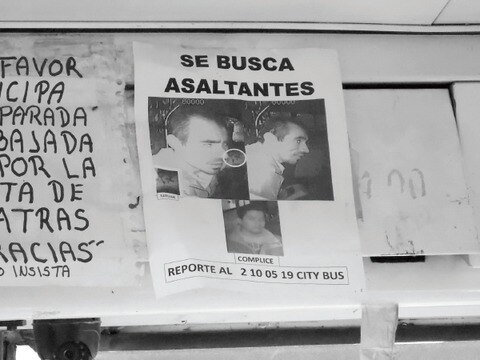 FAVOR
CIPA
PARADA
BAJADA
POR LA
TA DE
ATRAS
RACIAS"
O INSISTA
SE BUSCA
ASALTANTES
COMPLICE
REPORTE AL 2 10 05 19 CITY BUS